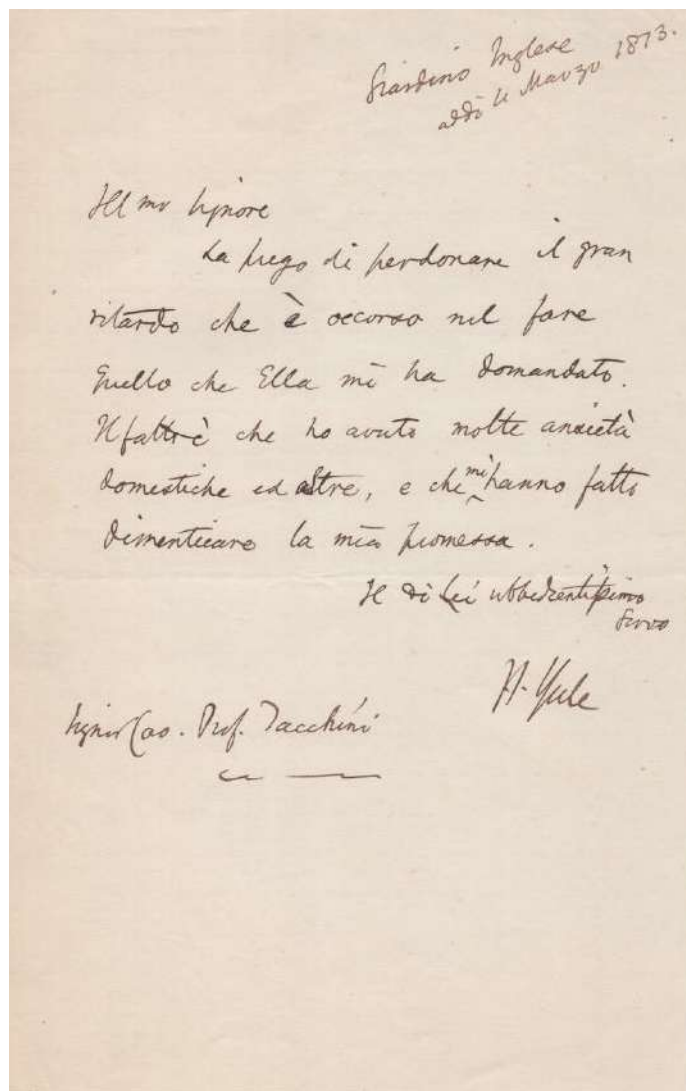 Giardino Inglese
addì 4 Marzo 1873.
Ill mo Signore
La prego di perdonare il gran
ritardo che è occorso nel fare
quello che Ella mi ha domandato.
Il fatto è che ho avuto molte ansietà
domestiche ed altre, e che mi hanno fatto
dimenticare la mia promessa.
Il di Lei ubbedientissimo
Servo
H. Yule
Signor Cav. Prof. Tacchini